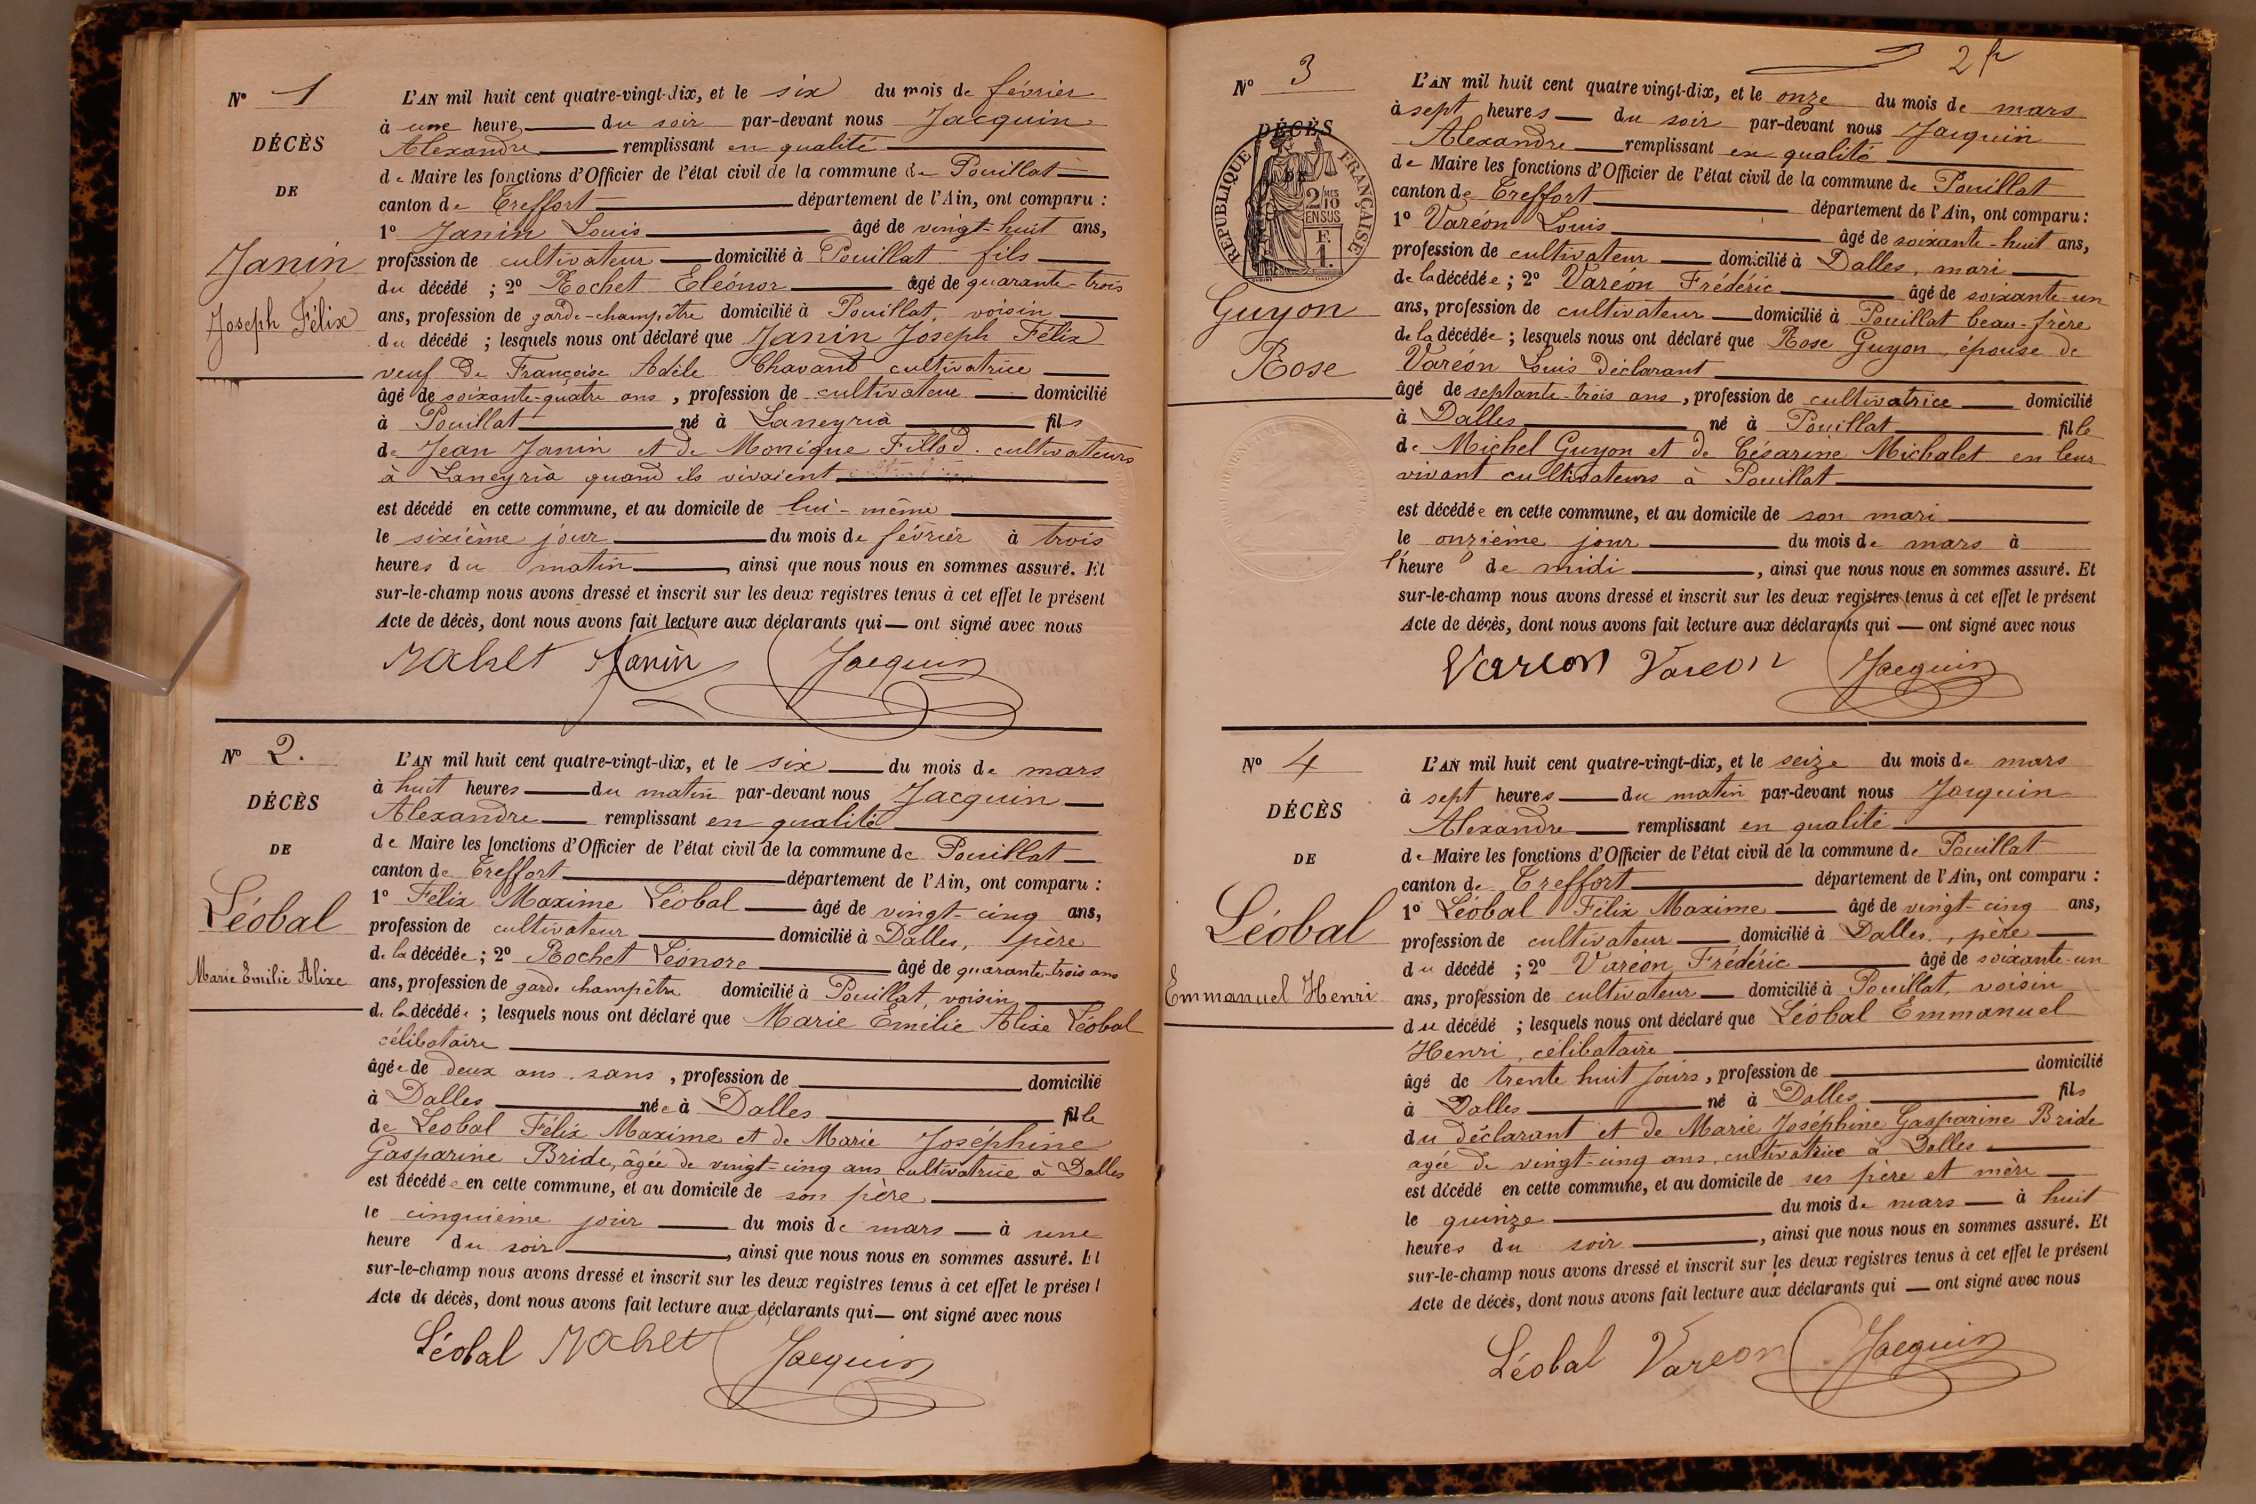 N° 1
DÉCÈS
DE
Janin
Joseph Félix
L'AN mil huit cent quatre-vingt-dix, et le six du mois de février
à une heure du soir par-devant nous Jacquin
Alexandre remplissant en qualité
de Maire les fonctions d'Officier de l'état civil de la commune de Pouillat
canton de Treffort département de l'Ain, ont comparu :
1° Janin Louis âgé de vingt-huit ans,
profession de cultivateur domicilié à Pouillat fils
du décédé ; 2° Rochet Eléonor âgé de quarante-trois
ans, profession de garde-champêtre domicilié à Pouillat, voisin
du décédé ; lesquels nous ont déclaré que Janin Joseph Félix
veuf de Françoise Adèle Chavand cultivatrice
âgé de soixante-quatre ans, profession de cultivateur domicilié
à Pouillat né à Laneyria fils
de Jean Janin et de Monique Fillod. cultivateurs
à Laneyria quand ils vivaient
est décédé en cette commune, et au domicile de lui-même
le sixième jour du mois de février à trois
heures du matin, ainsi que nous nous en sommes assuré. Et
sur-le-champ nous avons dressé et inscrit sur les deux registres tenus à cet effet le présent
Acte de décès, dont nous avons fait lecture aux déclarants qui — ont signé avec nous
Rochet Janin Jacquin
N° 2.
DÉCÈS
DE
Léobal
Marie Emilie Alixe
L'AN mil huit cent quatre-vingt-dix, et le six du mois de mars
à huit heures du matin par-devant nous Jacquin
Alexandre remplissant en qualité
de Maire les fonctions d'Officier de l'état civil de la commune de Pouillat
canton de Treffort département de l'Ain, ont comparu :
1° Félix Maxime Léobal âgé de vingt-cinq ans,
profession de cultivateur domicilié à Dalles, père
de la décédée ; 2° Rochet Léonore âgé de quarante-trois ans
ans, profession de garde champêtre domicilié à Pouillat, voisin
de la décédée ; lesquels nous ont déclaré que Marie Emilie Alixe Léobal
célibataire
âgée de deux ans. sans, profession de domicilié
à Dalles née à Dalles fille
de Léobal Félix Maxime et de Marie Joséphine
Gasparine Bride, âgée de vingt-cinq ans cultivatrice à Dalles
est décédée en cette commune, et au domicile de son père
le cinquième jour du mois de mars à une
heure du soir, ainsi que nous nous en sommes assuré. Et
sur-le-champ nous avons dressé et inscrit sur les deux registres tenus à cet effet le présent
Acte de décès, dont nous avons fait lecture aux déclarants qui — ont signé avec nous
Léobal Rochet Jacquin
2
N° 3
DÉCÈS
DE
RÉPUBLIQUE FRANÇAISE
2/10 EN SUS
F. 1.
Guyon
Rose
L'AN mil huit cent quatre vingt-dix, et le onze du mois de mars
à sept heures du soir par-devant nous Jacquin
Alexandre remplissant en qualité
de Maire les fonctions d'Officier de l'état civil de la commune de Pouillat
canton de Treffort département de l'Ain, ont comparu :
1° Varéon Louis âgé de soixante-huit ans,
profession de cultivateur domicilié à Dalles, mari
de la décédée ; 2° Varéon Frédéric âgé de soixante-un
ans, profession de cultivateur domicilié à Pouillat beau-frère
de la décédée ; lesquels nous ont déclaré que Rose Guyon, épouse de
Varéon Louis déclarant
âgé de septante-trois ans, profession de cultivatrice domicilié
à Dalles né à Pouillat fille
de Michel Guyon et de Césarine Michalet en leur
vivant cultivateurs à Pouillat
est décédée en cette commune, et au domicile de son mari
le onzième jour du mois de mars à
l'heure de midi, ainsi que nous nous en sommes assuré. Et
sur-le-champ nous avons dressé et inscrit sur les deux registres tenus à cet effet le présent
Acte de décès, dont nous avons fait lecture aux déclarants qui — ont signé avec nous
Vareon Vareon Jacquin
N° 4
DÉCÈS
DE
Léobal
Emmanuel Henri
L'AN mil huit cent quatre-vingt-dix, et le seize du mois de mars
à sept heures du matin par-devant nous Jacquin
Alexandre remplissant en qualité
de Maire les fonctions d'Officier de l'état civil de la commune de Pouillat
canton de Treffort département de l'Ain, ont comparu :
1° Léobal Félix Maxime âgé de vingt-cinq ans,
profession de cultivateur domicilié à Dalles, père
du décédé ; 2° Varéon Frédéric âgé de soixante-un
ans, profession de cultivateur domicilié à Pouillat, voisin
du décédé ; lesquels nous ont déclaré que Léobal Emmanuel
Henri, célibataire
âgé de trente huit jours, profession de domicilié
à Dalles né à Dalles fils
du déclarant et de Marie Joséphine Gasparine Bride
agée de vingt-cinq ans, cultivatrice à Dalles
est décédé en cette commune, et au domicile de ses père et mère
le quinze du mois de mars à huit
heures du soir, ainsi que nous nous en sommes assuré. Et
sur-le-champ nous avons dressé et inscrit sur les deux registres tenus à cet effet le présent
Acte de décès, dont nous avons fait lecture aux déclarants qui — ont signé avec nous
Léobal Vareon Jacquin